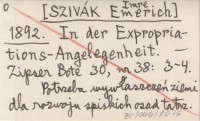 o
Imre
[SZIVÁK Emerich]
1892. In der Expropria-
tions-Angelegenheit. –
Zipser Bote 30, nr 38: 3-4.
Potrzeba wywłaszczeń ziemi
dla rozwoju spiskich osad tatrz.